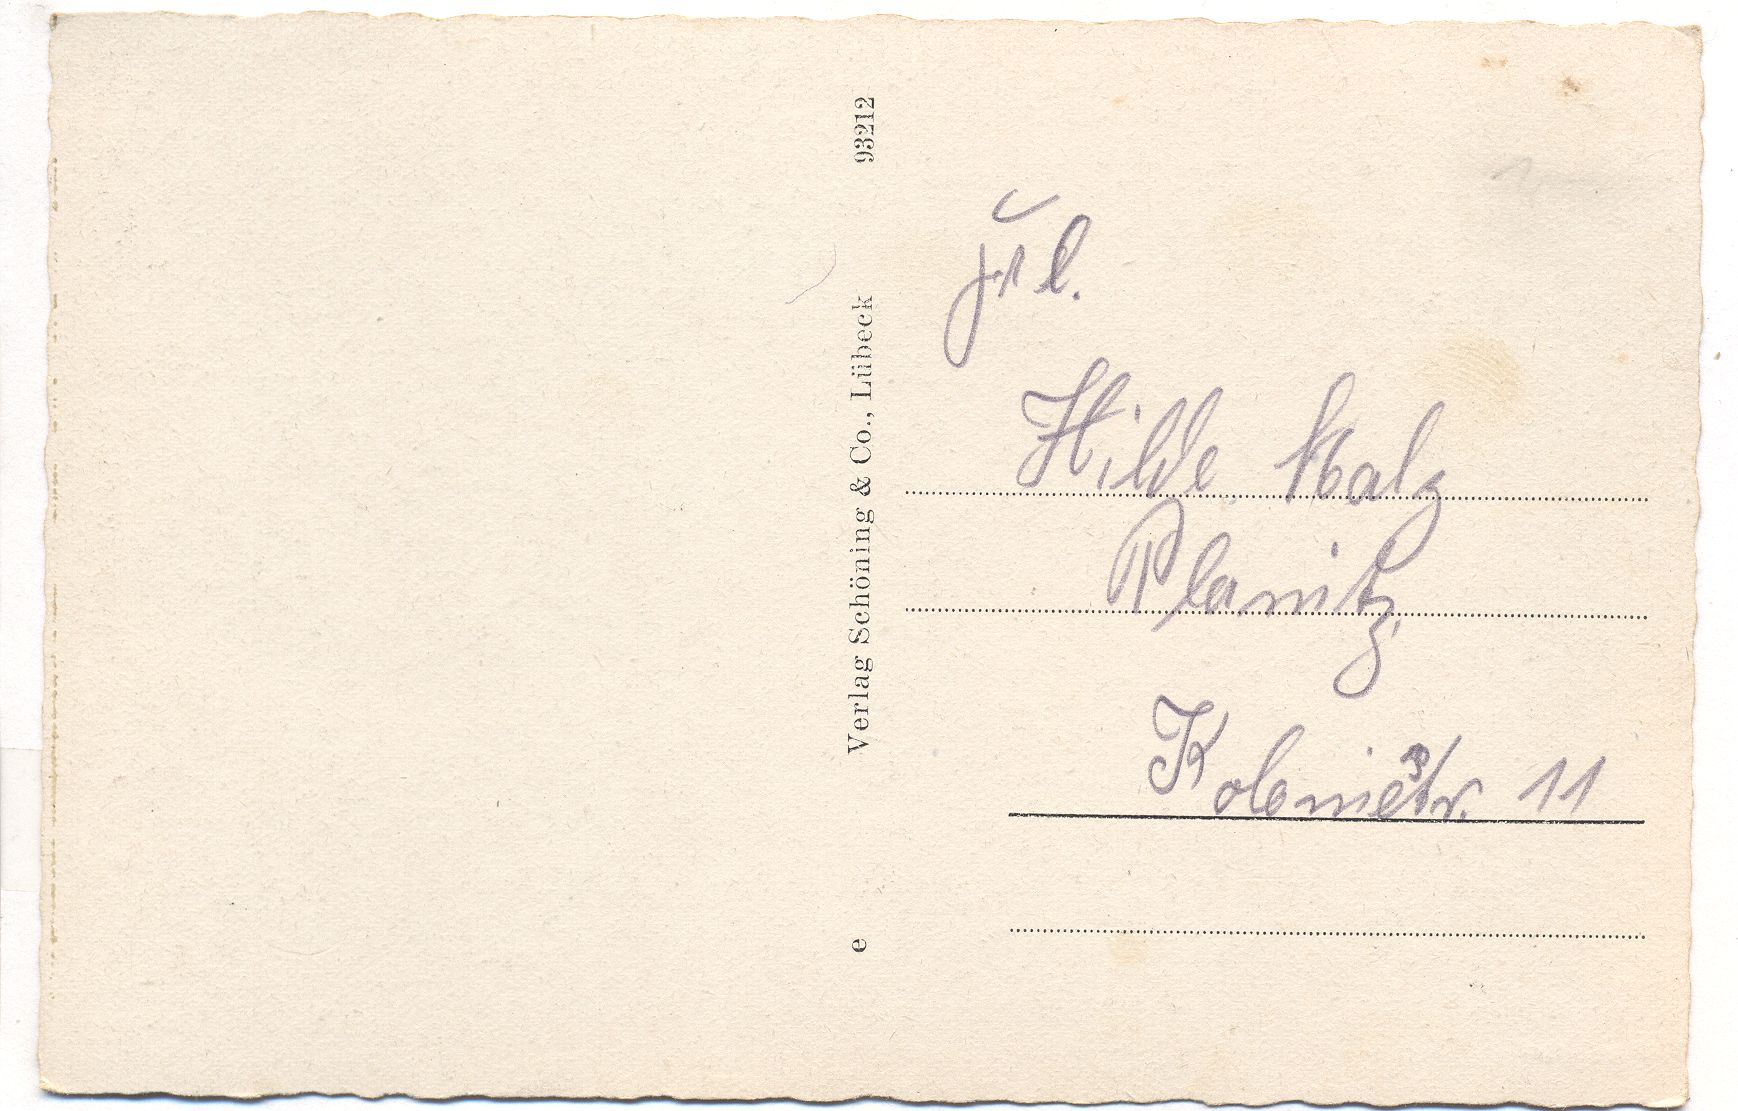 93212
Verlag Schöning & Co., Lübeck
e
Frl.
Hilde
Planitz
Koloniestr. 11